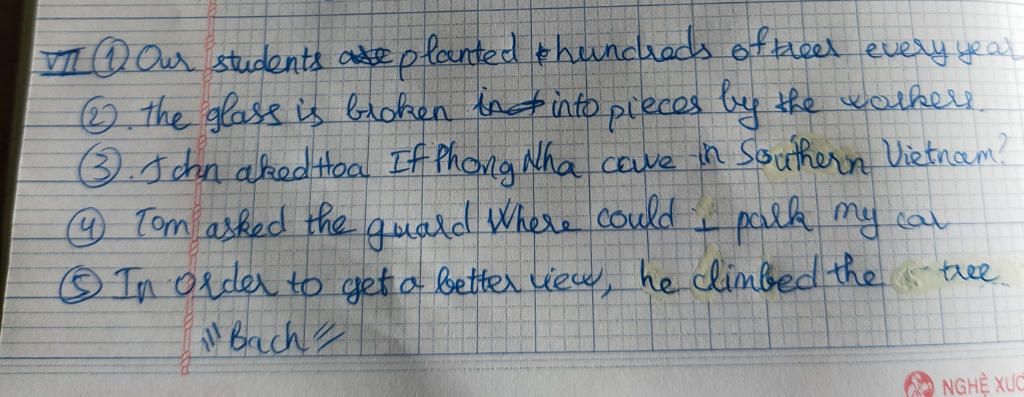 VII ① Our students are planted hundreds of trees every year
②. the glass is broken int into pieces by the workers.
③. John aked Hoa If Phong Nha cave in Southern Vietnam?
④ Tom asked the guard Where could I park my car
⑤ In order to get a better view, he climbed the tree.
Bach
NGHỆ XƯƠ